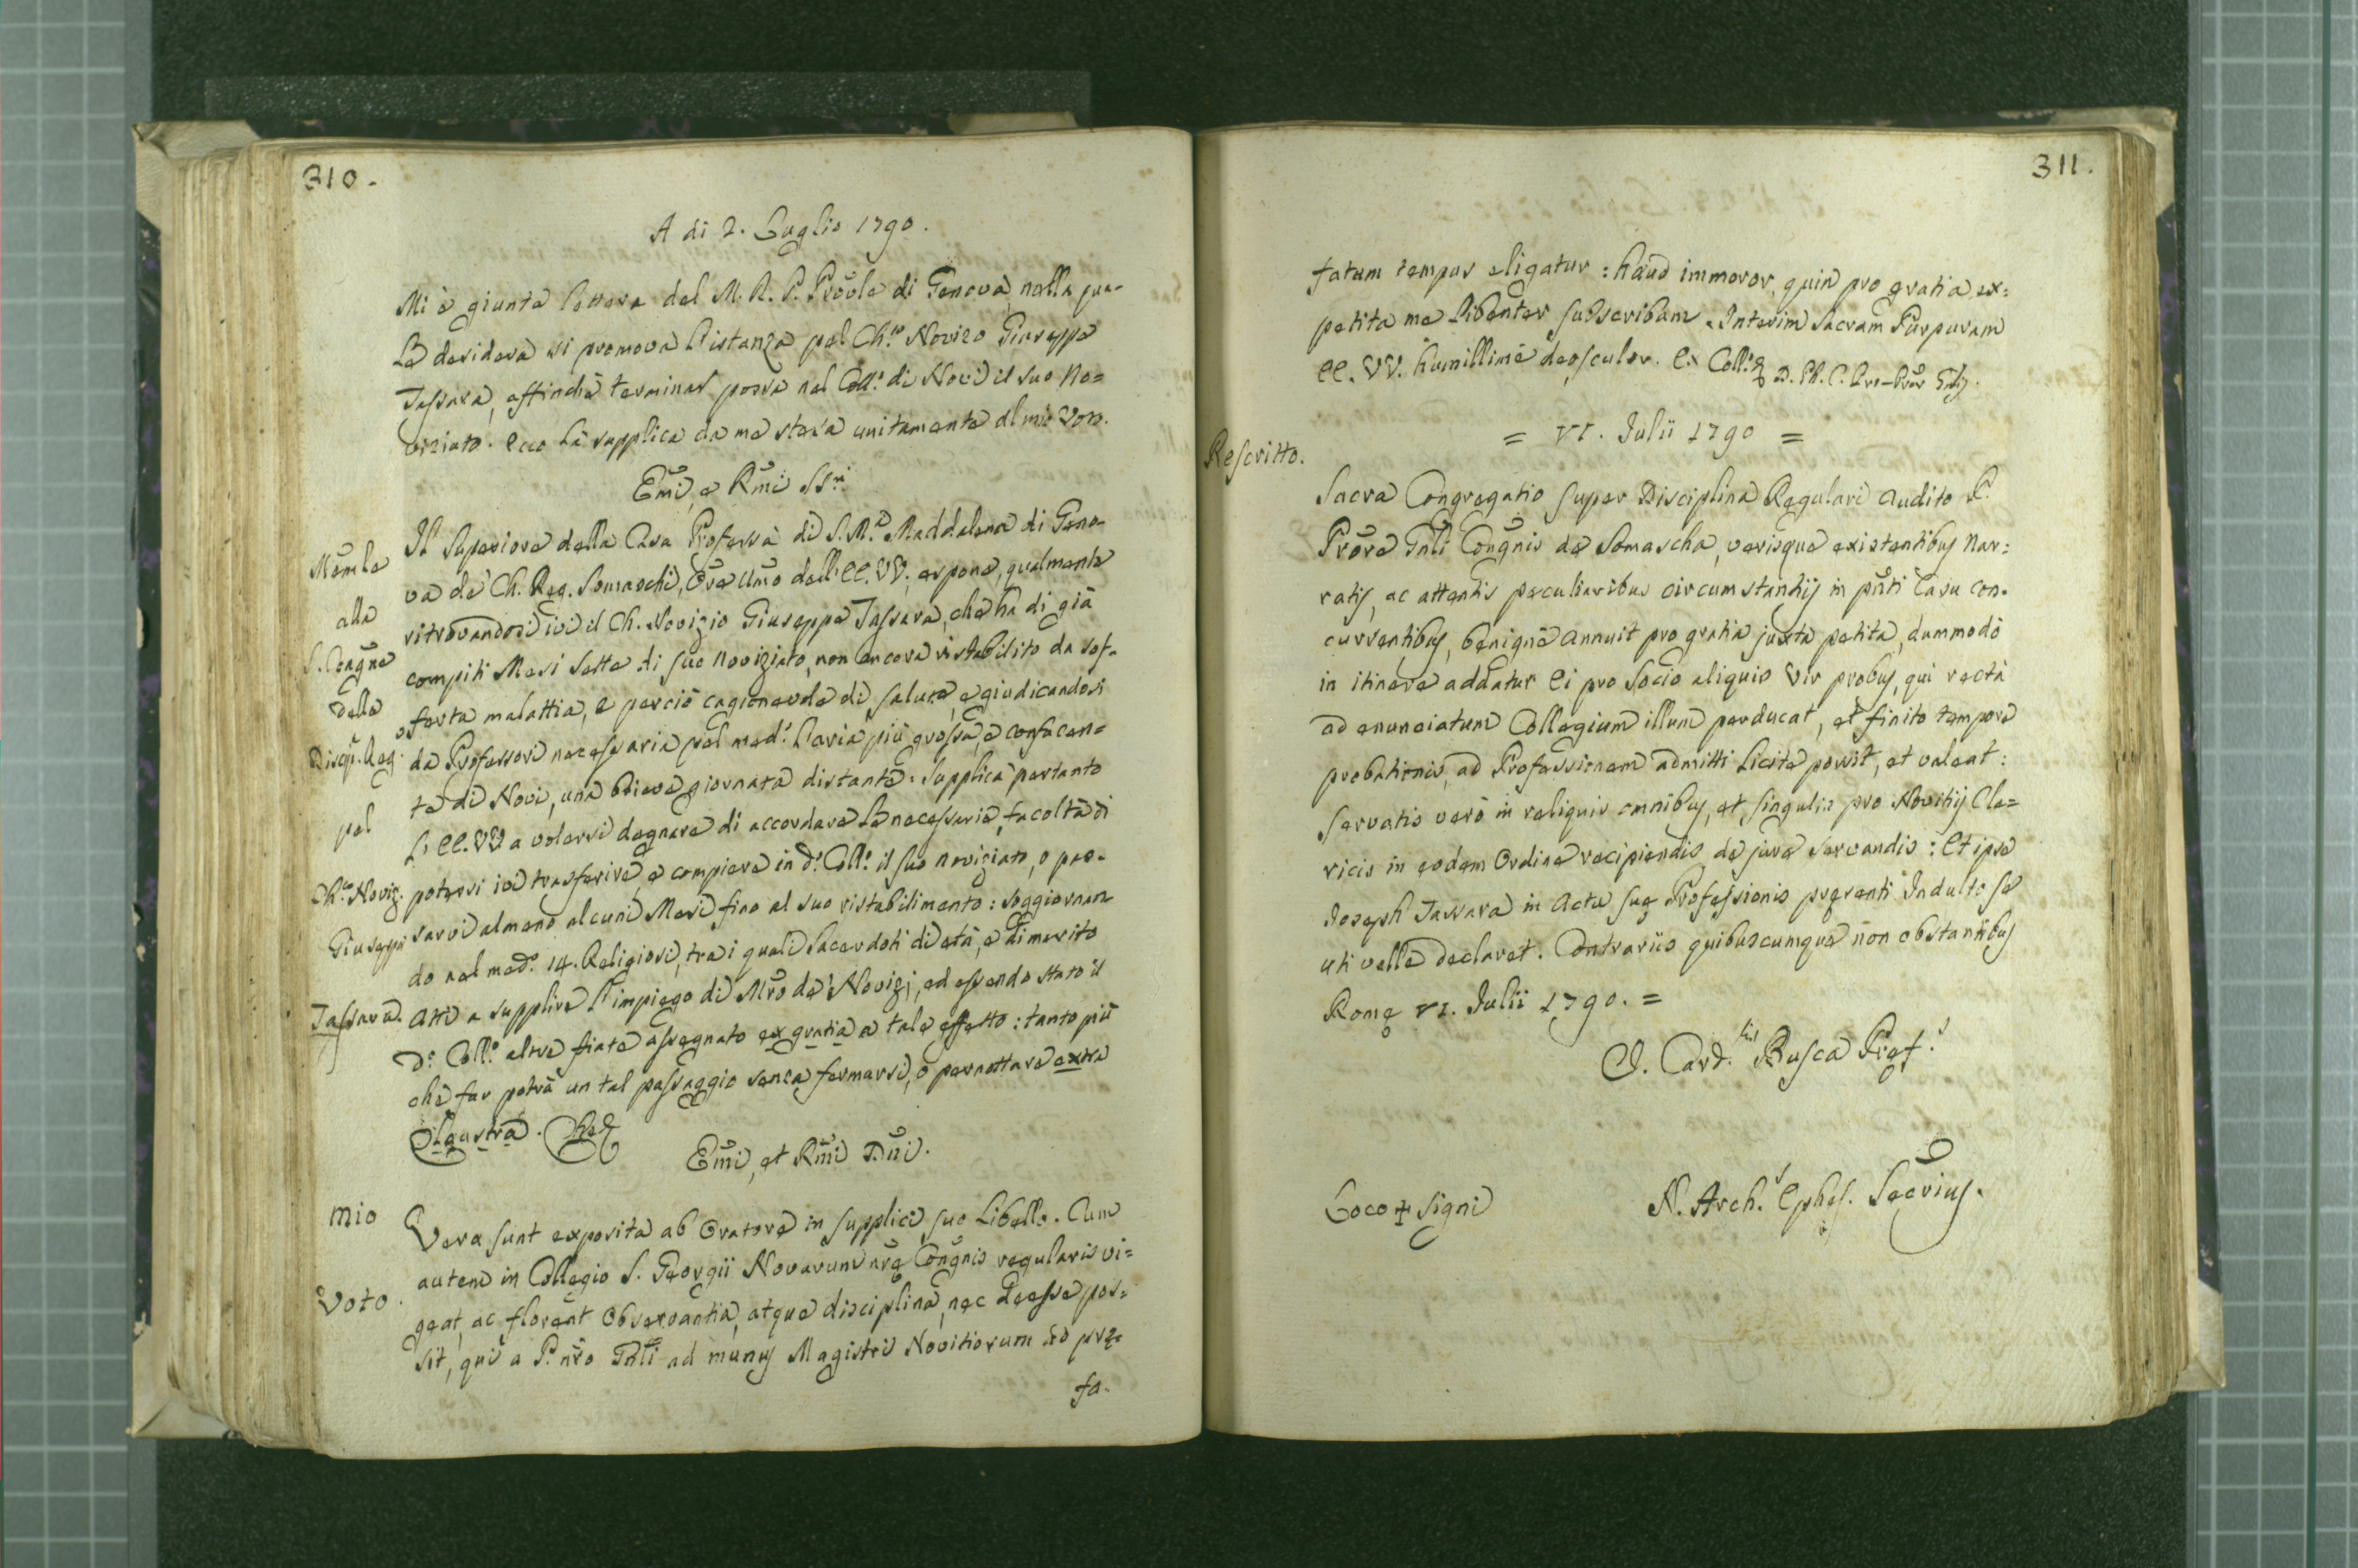 310.
A di 2. Luglio 1790.
Mi è giunta lettera del M. R. P. Prõvle di Genova, nella qua-
le desidera si promova l'istanza pel Ch.co Novizo Giuseppe
Tassara, affinchè terminar possa nel Coll.o di Novi il suo No=
viziato. Ecco la supplica da me stesa unitamente al mio Voto.
Em̃i, e Rm̃i SS.ri
Mem̃le
alla
S. Congñe
della
Discip. Reg.
pel
Ch.co Noviz.
Giuseppe
Tassara.
Il Superiore della Casa Professa di S. M.a Maddalena di Geno-
va de' Ch. Reg. Somaschi, Ore Um̃o dell' EE. VV. espone, qualmente
ritrovandosi ivi il Ch. Novizio Giuseppe Tassara, che ha di già
compiti Mesi Sette di suo Noviziato, non ancora ristabilito da sof-
ferta malattia, e perciò cagionevole di salute, e giudicandosi
da Professori necessaria pel med.o l'aria più grossa, e confacen=
te di Novi, una brieve giornata distante: Supplica pertanto
l' EE. VV. a volersi degnare di accordare le necessarie facoltà di
potersi ivi trasferire, e compiere in d.o Coll.o il suo noviziato, o pas-
sarvi almeno alcuni Mesi fino al suo ristabilimento: soggiornan
do nel med.o 14. Religiosi, tra i quali Sacerdoti di età, e di merito
atti a supplire l'impiego di Mr̃o de' Novizj, ed essendo stato il
d.o Coll.o altre fiate assegnato ex gratia a tale effetto: tanto più
che far potrà un tal passaggio senza fermarsi, o pernottare extra
Claustra. Che
Em̃i, et Rm̃i Dñi.
Mio
Voto.
Vera sunt exposita ab Oratore in supplici suo Libello. Cum
autem in Collegio S. Georgii Novarum nrę Congñis regularis vi=
geat, ac floreat Observantia, atque disciplina, nec deesse pos=
sit, qui a P. nr̃o Gñli ad munus Magistri Novitiorum ad prę-
fa-
311.
fatum tempus eligatur: haud immoror, quin pro gratia ex=
petita me libenter subscribam. Interim Sacram Purpuram
EE. VV. humillime deosculor. Ex Coll.o & D. Ph. C. Pro-Prõr Gñlis.
= VI. Julii 1790 =
Rescritto.
Sacra Congregatio super Disciplina Regulari audito P.
Prõre Gñli Congñis de Somascha, verisque existentibus nar=
ratis, ac attentis peculiaribus circumstantiis in pñti Casu con-
currentibus, benigne annuit pro gratia juxta petita, dummodo
in itinere addatur Ei pro Socio aliquis Vir probus, qui recta
ad enunciatum Collegium illum perducat, et finito tempore
probationis, ad Professionem admitti licite possit, et valeat:
servatis vero in reliquis omnibus, et singulis pro Novitiis Cle=
ricis in eodem Ordine recipiendis de jure servandis: Et ipse
Joseph Tassara in Actu suę Professionis pręsenti Indulto se
uti velle declaret. Contrariis quibuscumque non obstantibus
Romę VI. Julii 1790. =
I. Card.lis Busca Pręf.s
Loco + Signi
N. Arch.s Ephes. Secrius.